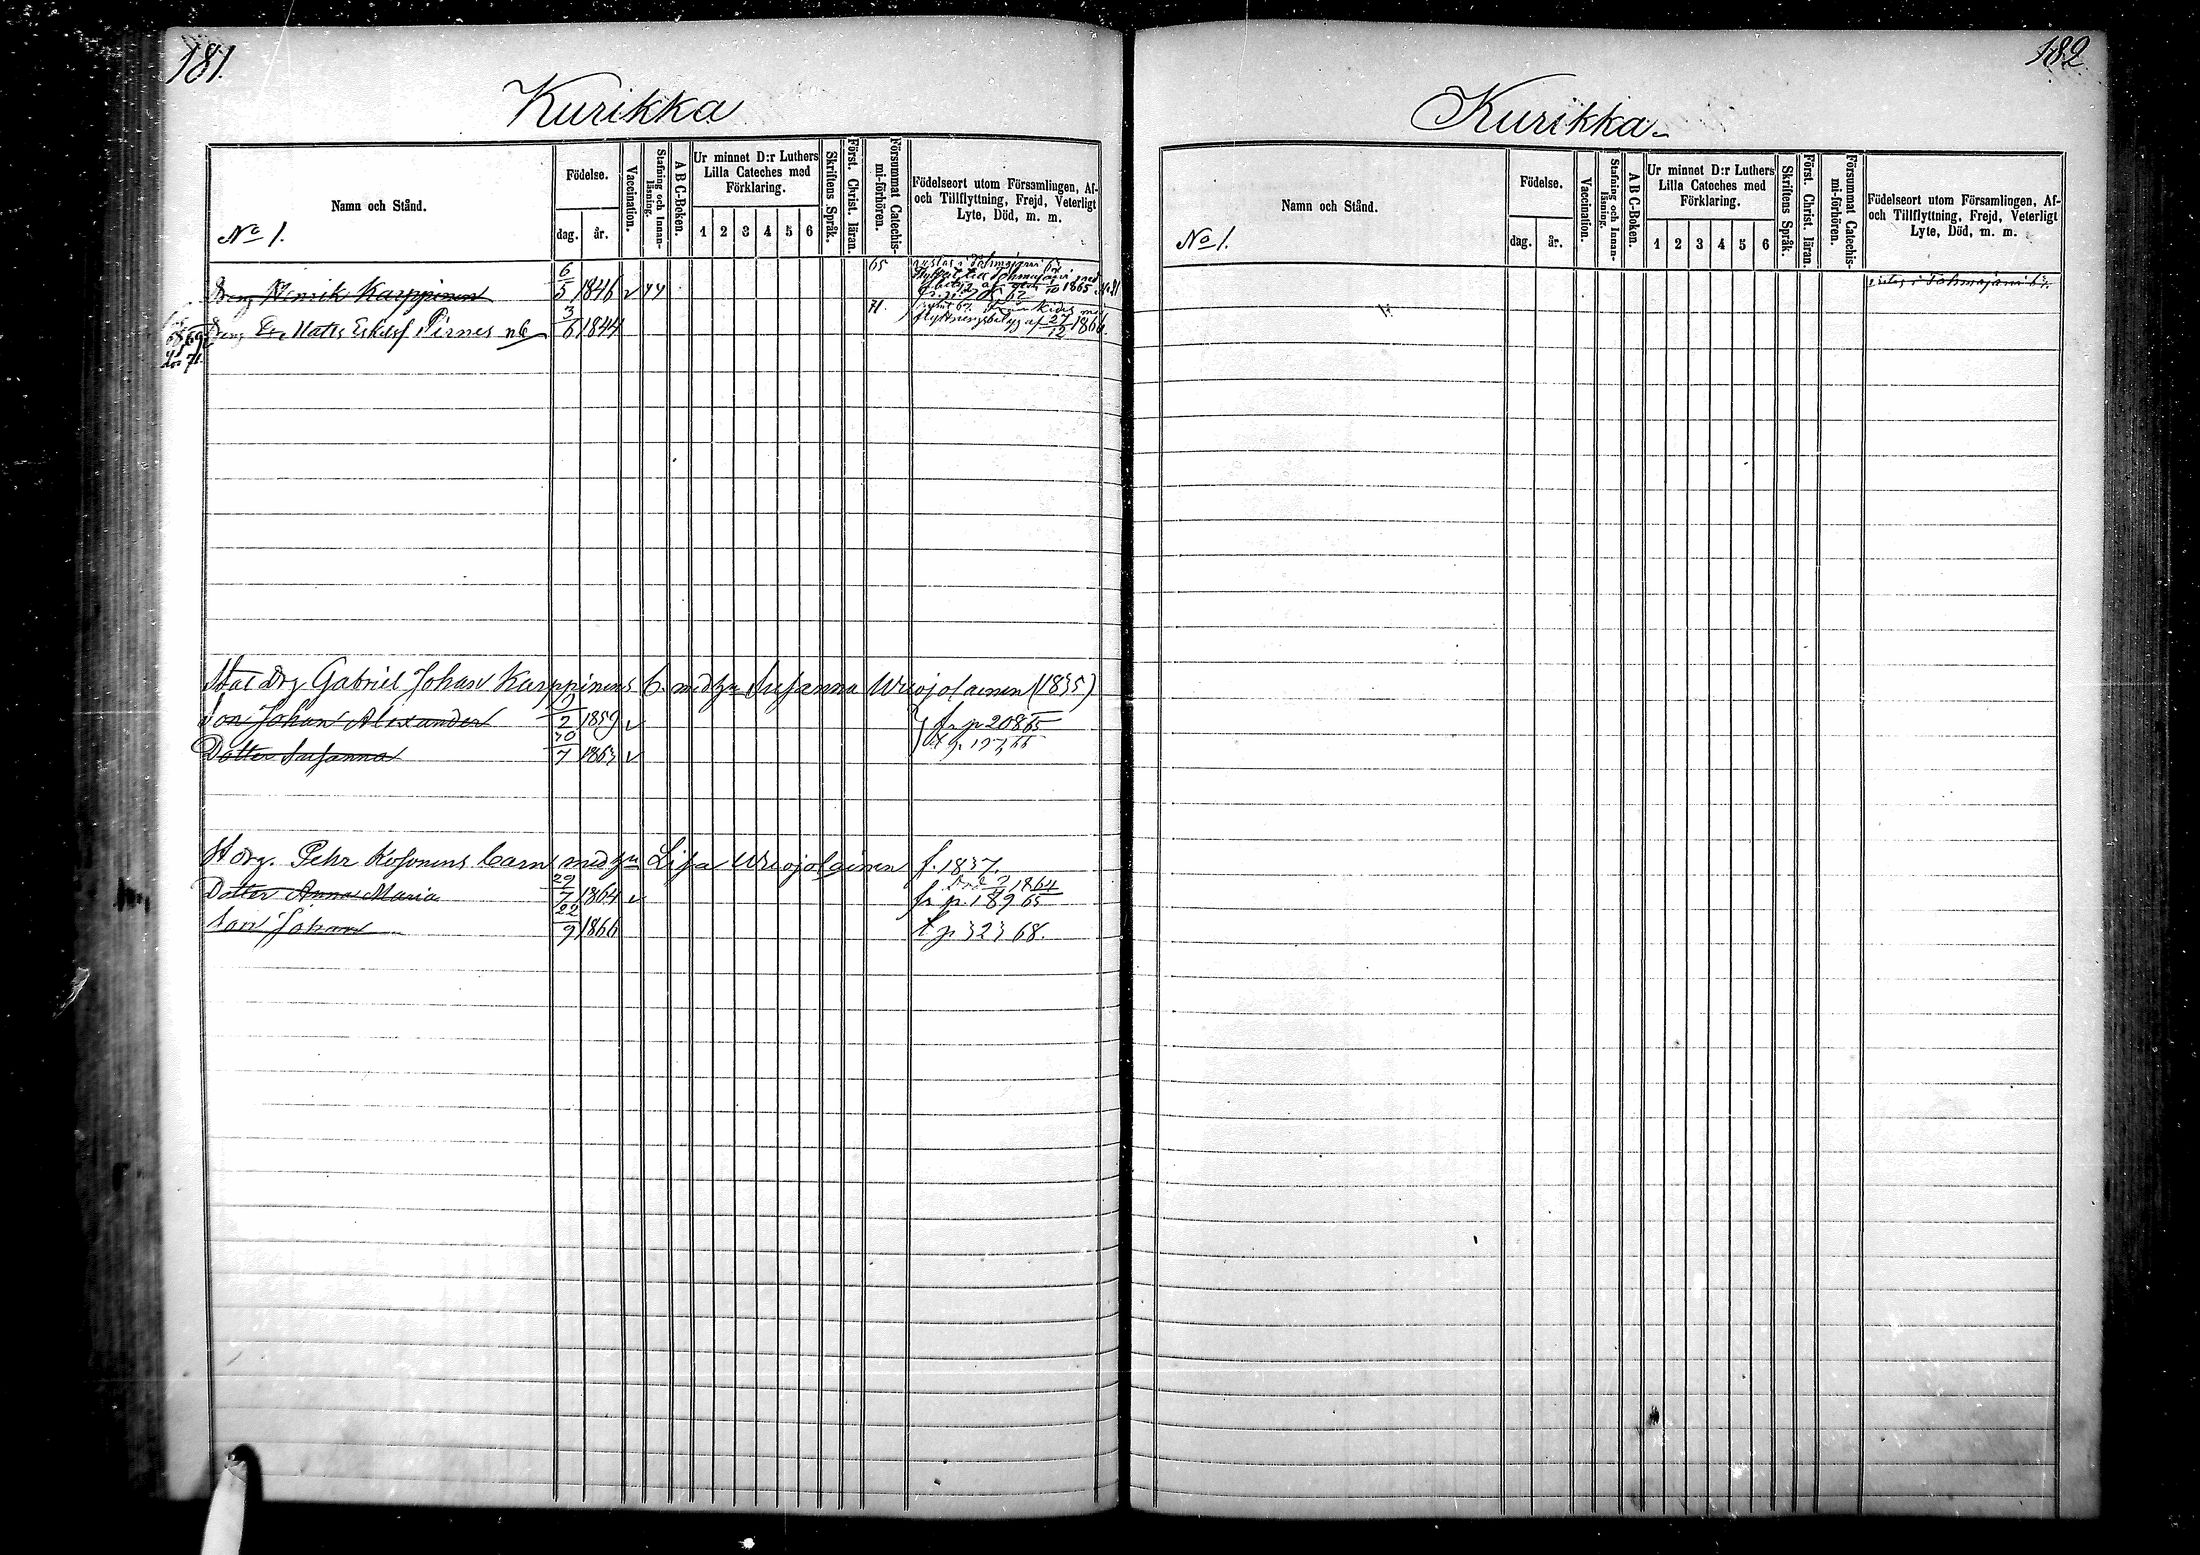 181.
Kurikka
Namn och Stånd.
No 1.
Födelse.
dag.
år.
Vaccination.
Stafning och Innan-
läsning.
A B C-Boken.
Ur minnet D:r Luthers
Lilla Cateches med
Förklaring.
1 2 3 4 5 6
Skriftens Språk.
Först. Christ. läran.
Försummat Catechis-
mi-förhören.
Födelseort utom Församlingen, Af-
och Tillflyttning, Frejd, Veterligt
Lyte, Död, m. m.
Dreng Henrik Karppinen 6/5 1846 65
flyttat till Tohmajärvi med
1865
Dreng Matts Pirnes 3/6 1844 71.
flyttningsbetyg af 27/12 1866.
Gabriel Johan Karppinens b. med Susanna Wuojolainen (1835)
Son Johan Alexander 2 1859 fr p 208 65
Dotter Susanna 30/7 1863
Pehr Kosonens barn med Lisa Wuojolainen f. 1837.
Död 1864
Dotter Anna Maria 29/7 1864 fr p. 189 65
Son Johan 22/9 1866 t p 323 68.
182
Kurikka
Namn och Stånd.
No 1.
Födelse.
dag.
år.
Vaccination.
Stafning och Innan-
läsning.
A B C-Boken.
Ur minnet D:r Luthers
Lilla Cateches med
Förklaring.
1 2 3 4 5 6
Skriftens Språk.
Först. Christ. läran.
Försummat Catechis-
mi-förhören.
Födelseort utom Församlingen, Af-
och Tillflyttning, Frejd, Veterligt
Lyte, Död, m. m.
i Tohmajärvi